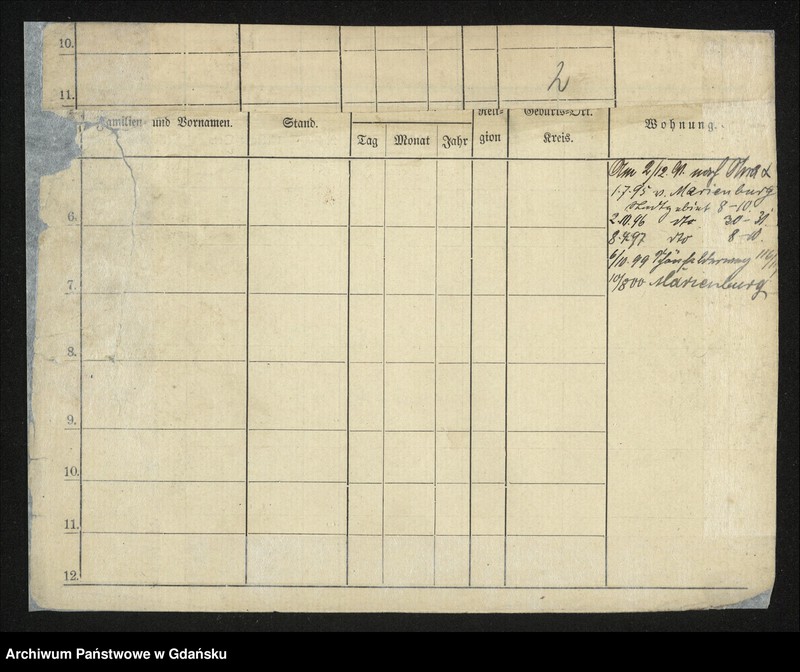 10.
11.
2
Familien- und Vornamen.
Stand.
Tag
Monat
Jahr
Reli-
gion
Geburts-Ort.
Kreis.
Wohnung.
Am 2/12. 91. nach
1.7.95 v. Marienburg
Stadtgebiet 8-10.
2.10.96 dto 30-31.
8.4.97 dto 8-10.
6/10.99
10/800 Marienburg
6.
7.
8.
9.
10.
11.
12.
Archiwum Państwowe w Gdańsku